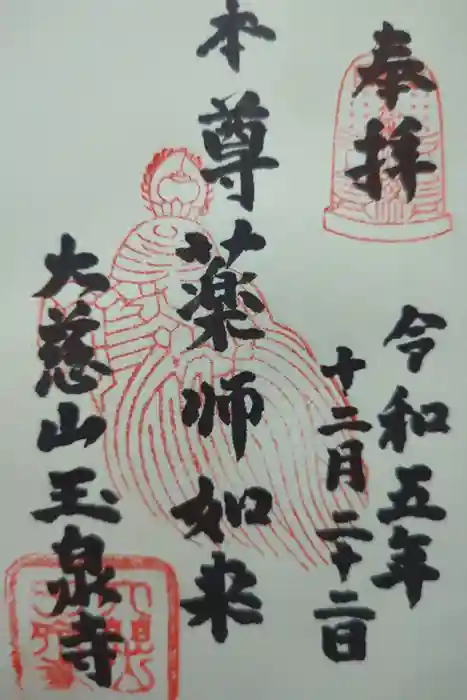 奉拝
令和五年
十二月二十二日
本尊薬師如来
大慈山玉泉寺